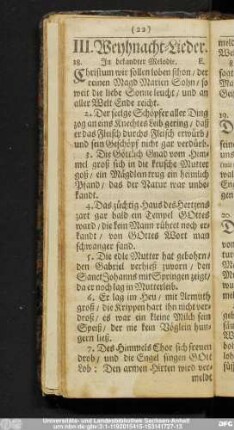 (22)
III. Weyhnacht-Lieder.
18. In bekandter Melodie. E.
Christum wir sollen loben schon / der
reinen Magd Marien Sohn / so
weit die liebe Sonne leucht / und an
aller Welt Ende reicht.
2. Der selge Schöpfer aller Ding
zog an eins Knechtes Leib gering / daß
er das Fleisch durchs Fleisch erwürb /
und sein Geschöpf nicht gar verdürb.
3. Die Göttlich Gnad vom Him̄
mel groß sich in die keusche Mutter
goß / ein Mägdlein trug ein heimlich
Pfand / das der Natur war unbe-
kandt.
4. Das züchtig Haus des Hertzens
zart gar bald ein Tempel GOttes
ward / die kein Mann rühret noch er-
kandt / von GOttes Wort man
schwanger fand.
5. Die edle Mutter hat gebohrn /
den Gabriel verhieß zuvorn / den
Sanct Johanns mit Springen zeigt /
da er noch lag in Mutterleib.
6. Er lag im Heu / mit Armuth
groß / die Krippen hart ihn nicht ver-
droß / es war ein kleine Milch sein
Speiß / der nie kein Vöglein hun-
gern ließ.
7. Des Himmels Chor sich freuen
drob / und die Engel singen GOtt
Lob : Den armen Hirten wird ver-
meldt
Universitäts- und Landesbibliothek Sachsen-Anhalt